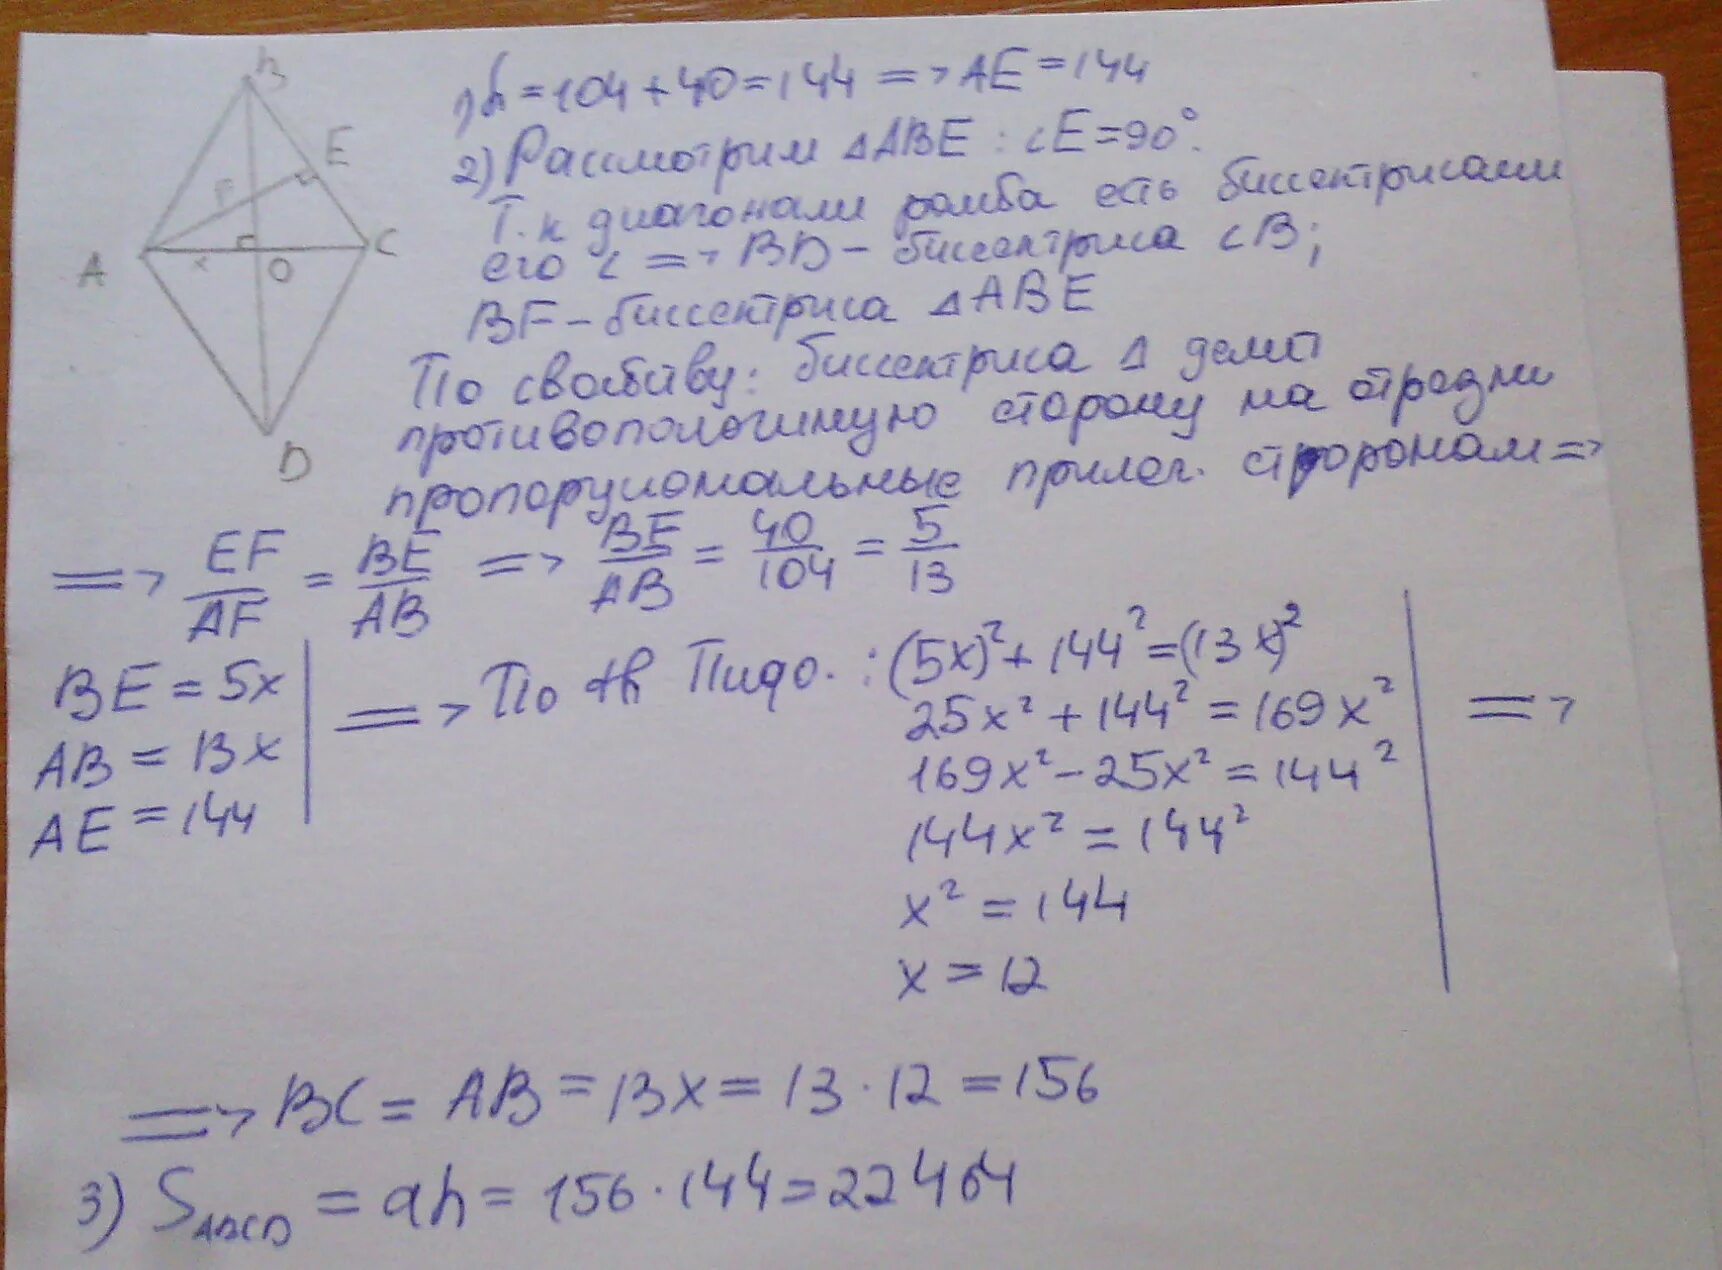 B
E
F
A
x
O
C
D
1) h = 104 + 40 = 144 => AE = 144
2) Рассмотрим △ABE : ∠E = 90°.
Т.к диагонали ромба есть биссектрисами
его ∠ => BD – биссектриса ∠B;
BF – биссектриса △ABE
По свойству: биссектриса △ делит
противоположную сторону на отрезки
пропорциональные прилег. сторонам =>
=> EF/AF = BE/AB => BE/AB = 40/104 = 5/13
BE = 5x
AB = 13x
AE = 144
=> По th Пифо. : (5x)² + 144² = (13x)²
25x² + 144² = 169x² =>
169x² – 25x² = 144²
144x² = 144²
x² = 144
x = 12
=> BC = AB = 13x = 13 · 12 = 156
3) S_ABCD = ah = 156 · 144 = 22464